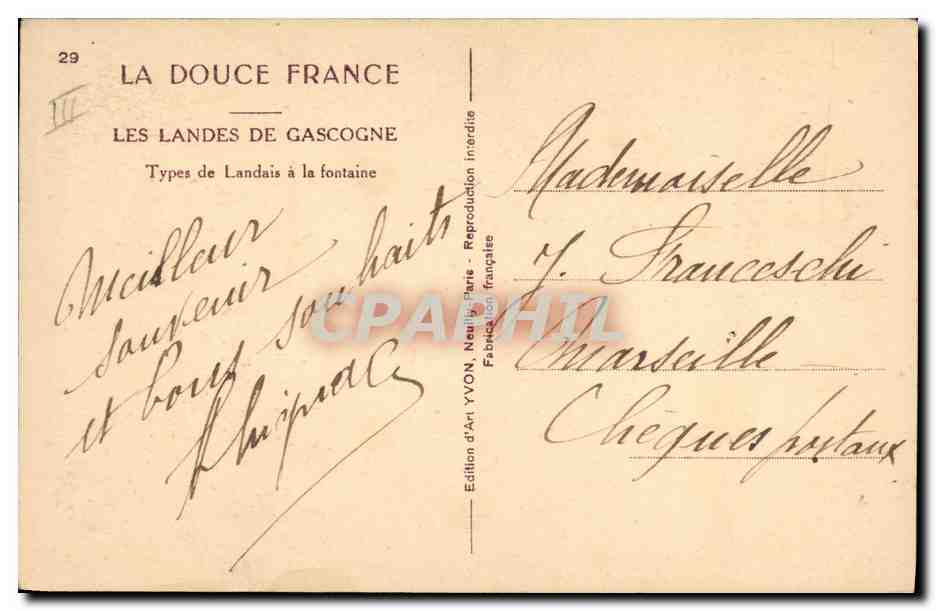 29
LA DOUCE FRANCE
III
LES LANDES DE GASCOGNE
Types de Landais à la fontaine
Meilleur
souvenir
et bons souhaits
Edition d'Art YVON, Neuilly-Paris - Reproduction interdite
Fabrication française
Mademoiselle
J. Franceschi
Marseille
Chèques postaux
CPAPHIL